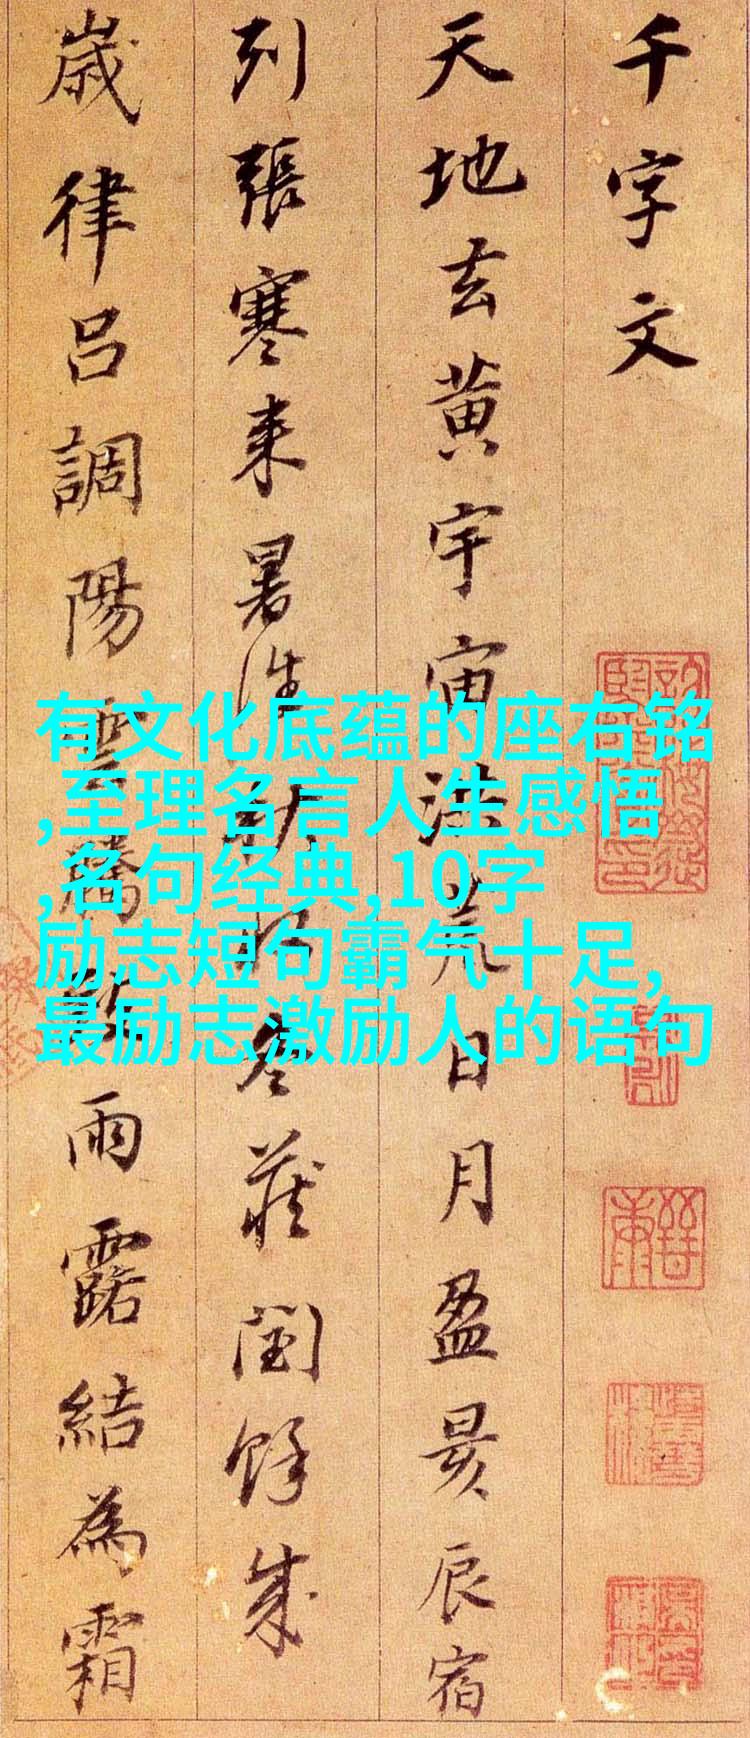 千字文
天地玄黄宇宙洪荒日月盈昃辰宿
列張寒来暑往秋收冬蔵閏餘成
歳律呂調陽雲騰致雨露結為霜
有文化底蕴的座右铭
,至理名言人生感悟
,名句经典,10字
励志短句霸气十足,
最励志激励人的语句